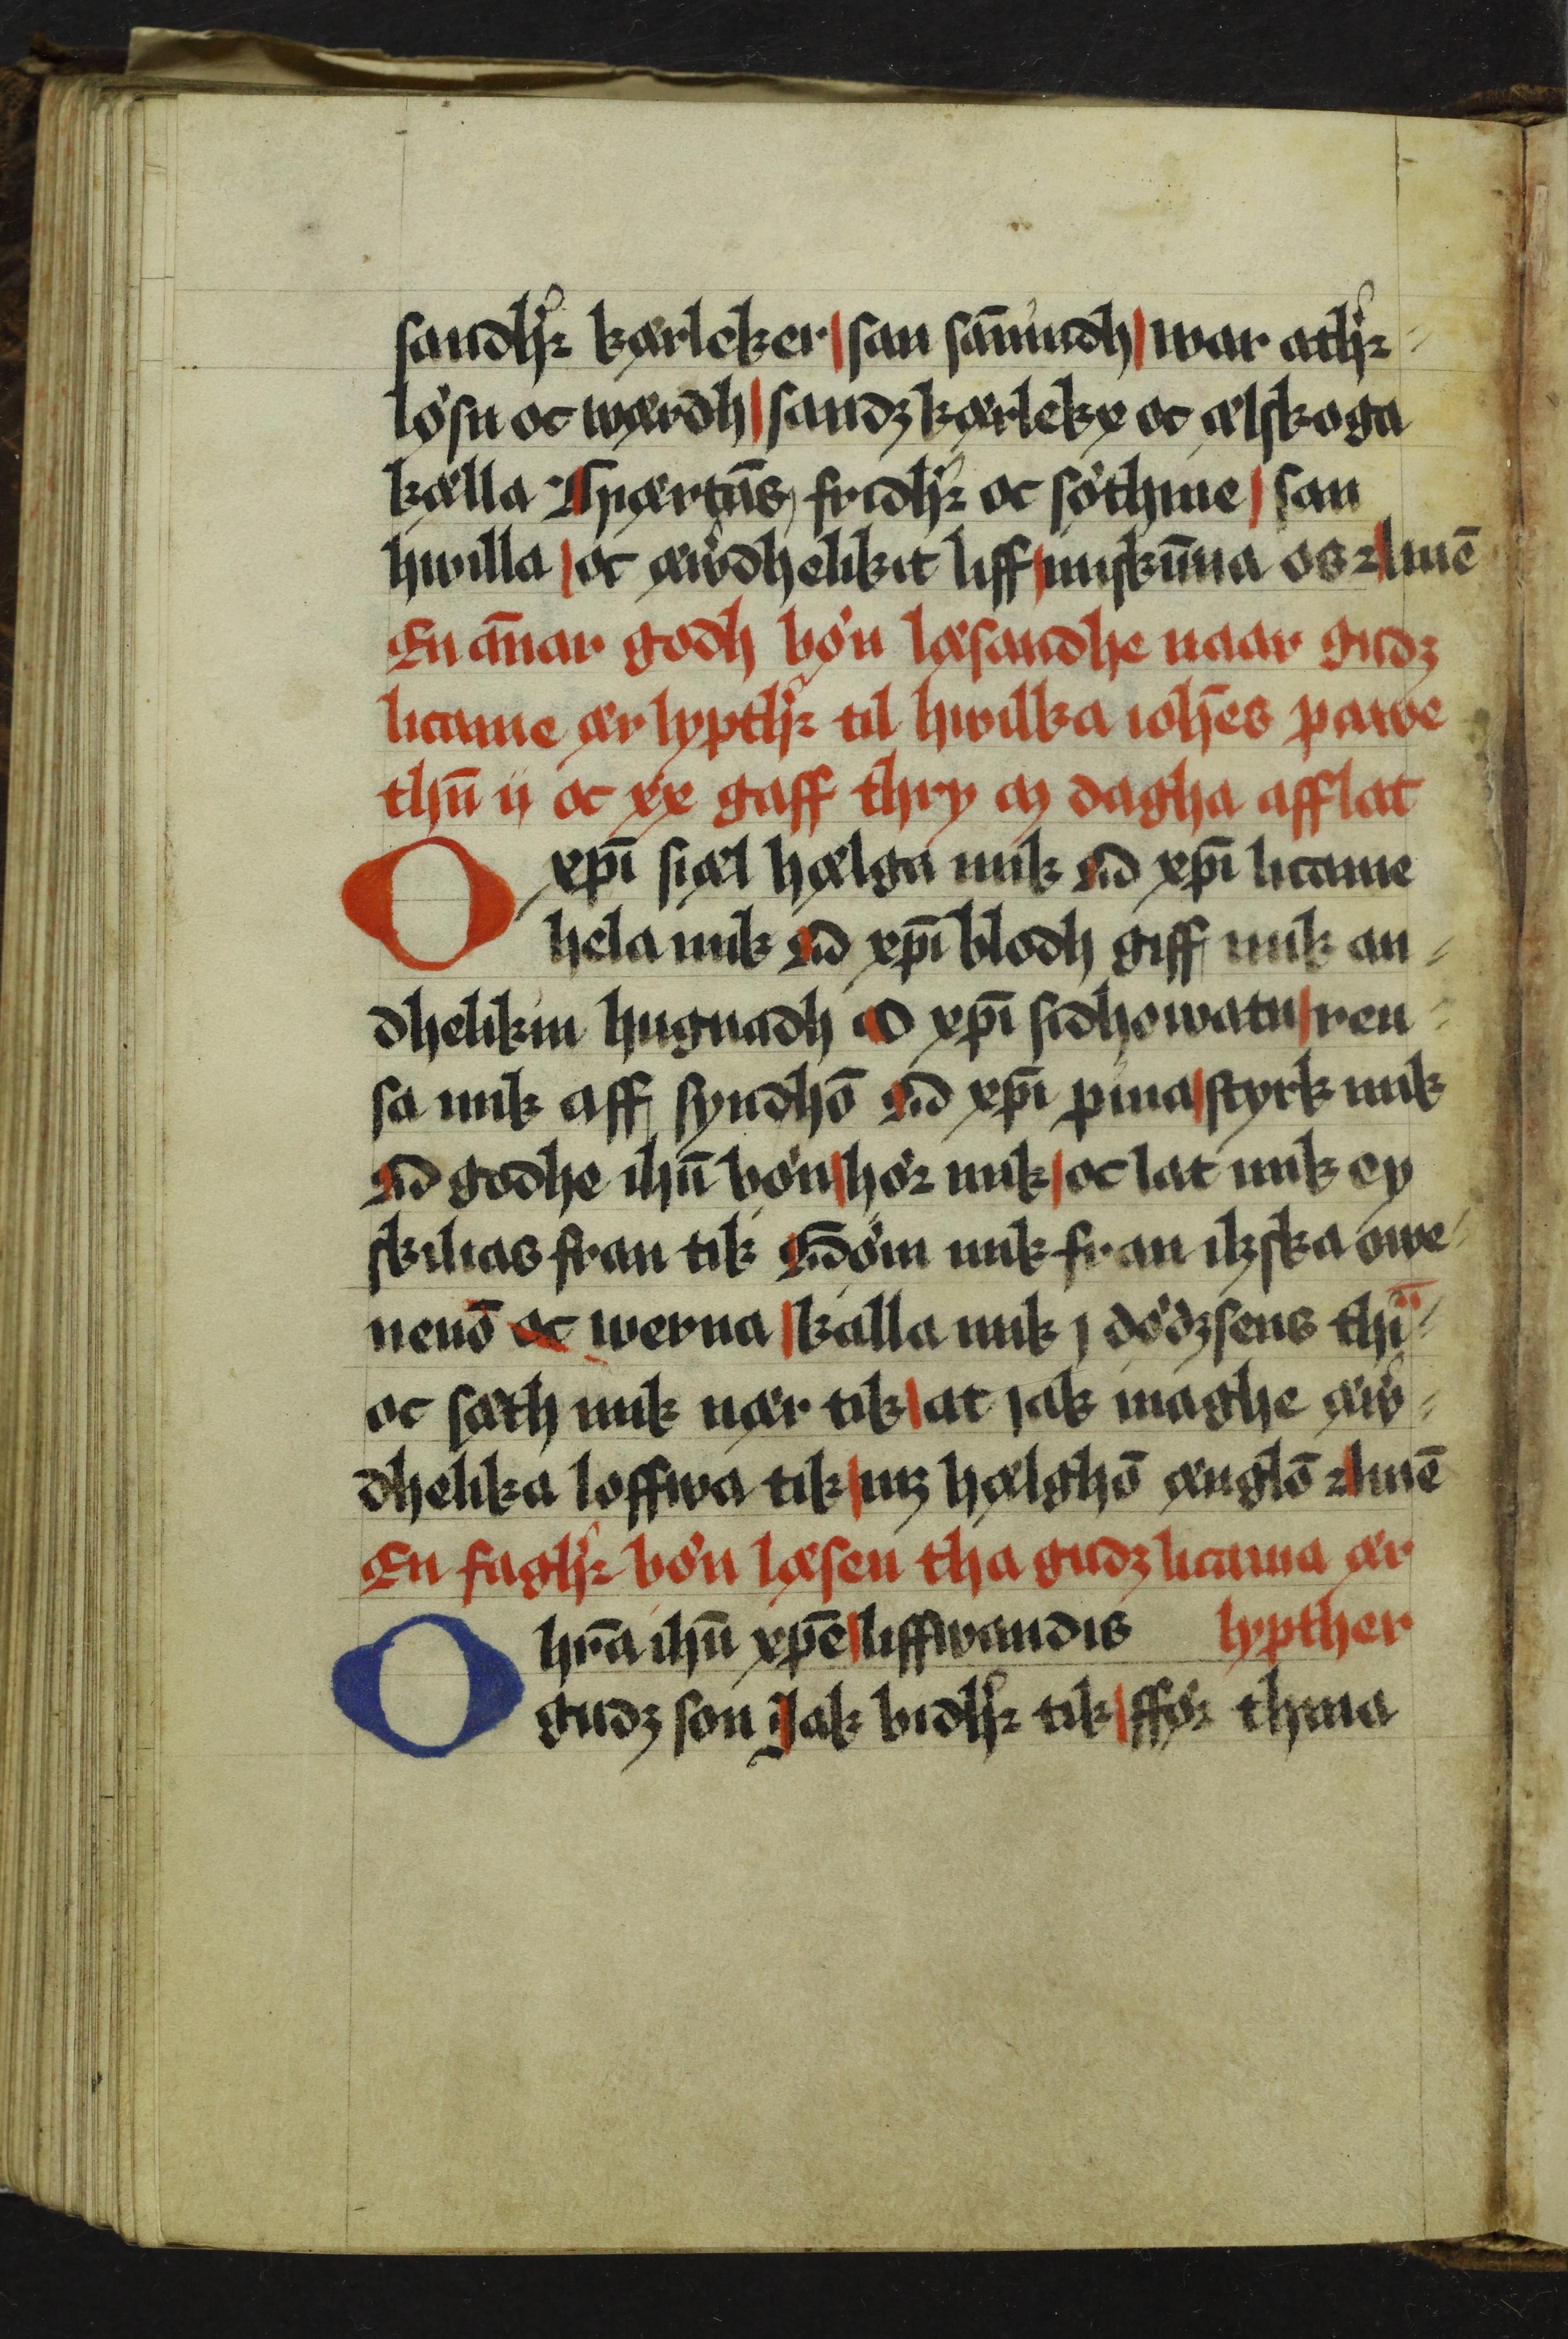 sandhr̛ kærleker san sāmudh war athr̛-
løsn oc wærdh sandz kærlekx oc ælskoga
kælla Hiærtās fridhr̛ oc søthme san
hwilla oc æwdhelikit liff miskūna os Amē
En ānar godh bøn læsandhe naar gudz
licame ær lypthr̛ til hwilka iohēs pawe
thn̄ ij oc xx gaff thry m dagha afflat
O xpī siæl hælga mik O xpī licame
hela mik O xpī blodh giff mik an-
dhelikin hugnadh O xpī sidhowatn ren-
sa mik aff syndhō O xpī pina styrk mik
O godhe ihū bøn hør mik oc lat mik ey
skilias fran tik Gøm mik fran ilzska owe-
nenō oc werna kalla mik j dødzsens thī-
oc sæth mik nær tik at jak maghe æw-
dhelika loffwa tik mz hælghō ænglō Amē
En faghr̛ bøn læsen tha gudz licama ær
O hr̄a ihū xpē liffwandis lypther
gudz son Jak bidhr̛ tik ffør thina